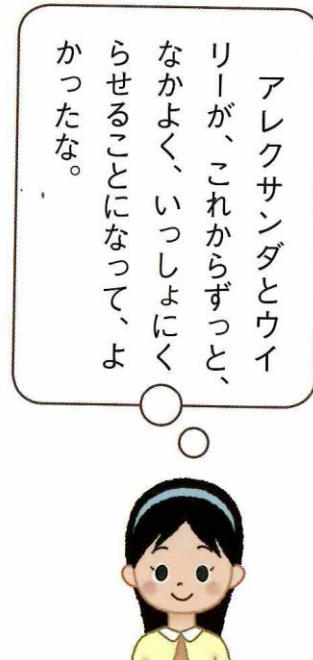 アレクサンダとウイ
リーが、これからずっと、
なかよく、いっしょにく
らせることになって、よ
かったな。